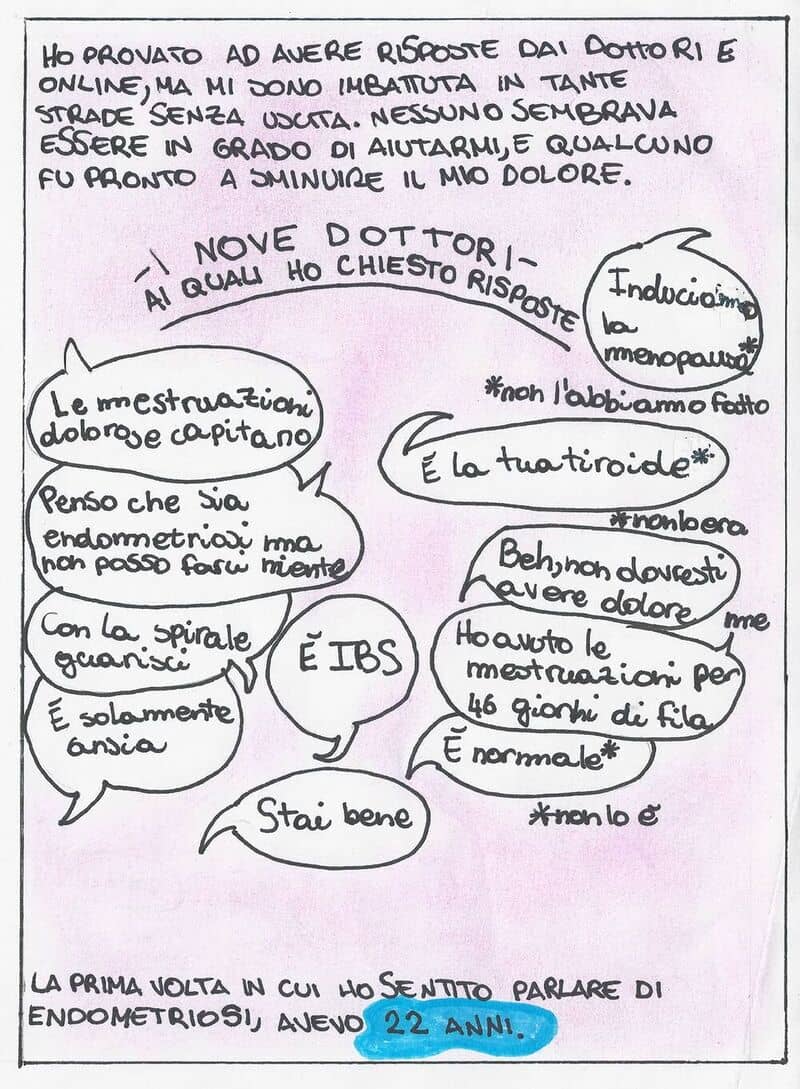 HO PROVATO AD AVERE RISPOSTE DAI DOTTORI E
ONLINE, MA MI SONO IMBATTUTA IN TANTE
STRADE SENZA USCITA. NESSUNO SEMBRAVA
ESSERE IN GRADO DI AIUTARMI, E QUALCUNO
FU PRONTO A SMINUIRE IL MIO DOLORE.
I NOVE DOTTORI
AI QUALI HO CHIESTO RISPOSTE
Induciamo
la
menopausa*
*non l'abbiamo fatto
Le mestruazioni
dolorose capitano
È la tua tiroide*
*non lo era
Penso che sia
endometriosi ma
non posso farci niente
Beh, non dovresti
avere dolore
me
Con la spirale
guarisci
È IBS
Ho avuto le
mestruazioni per
46 giorni di fila
È solamente
ansia
È normale*
*non lo è
Stai bene
LA PRIMA VOLTA IN CUI HO SENTITO PARLARE DI
ENDOMETRIOSI, AVEVO 22 ANNI.